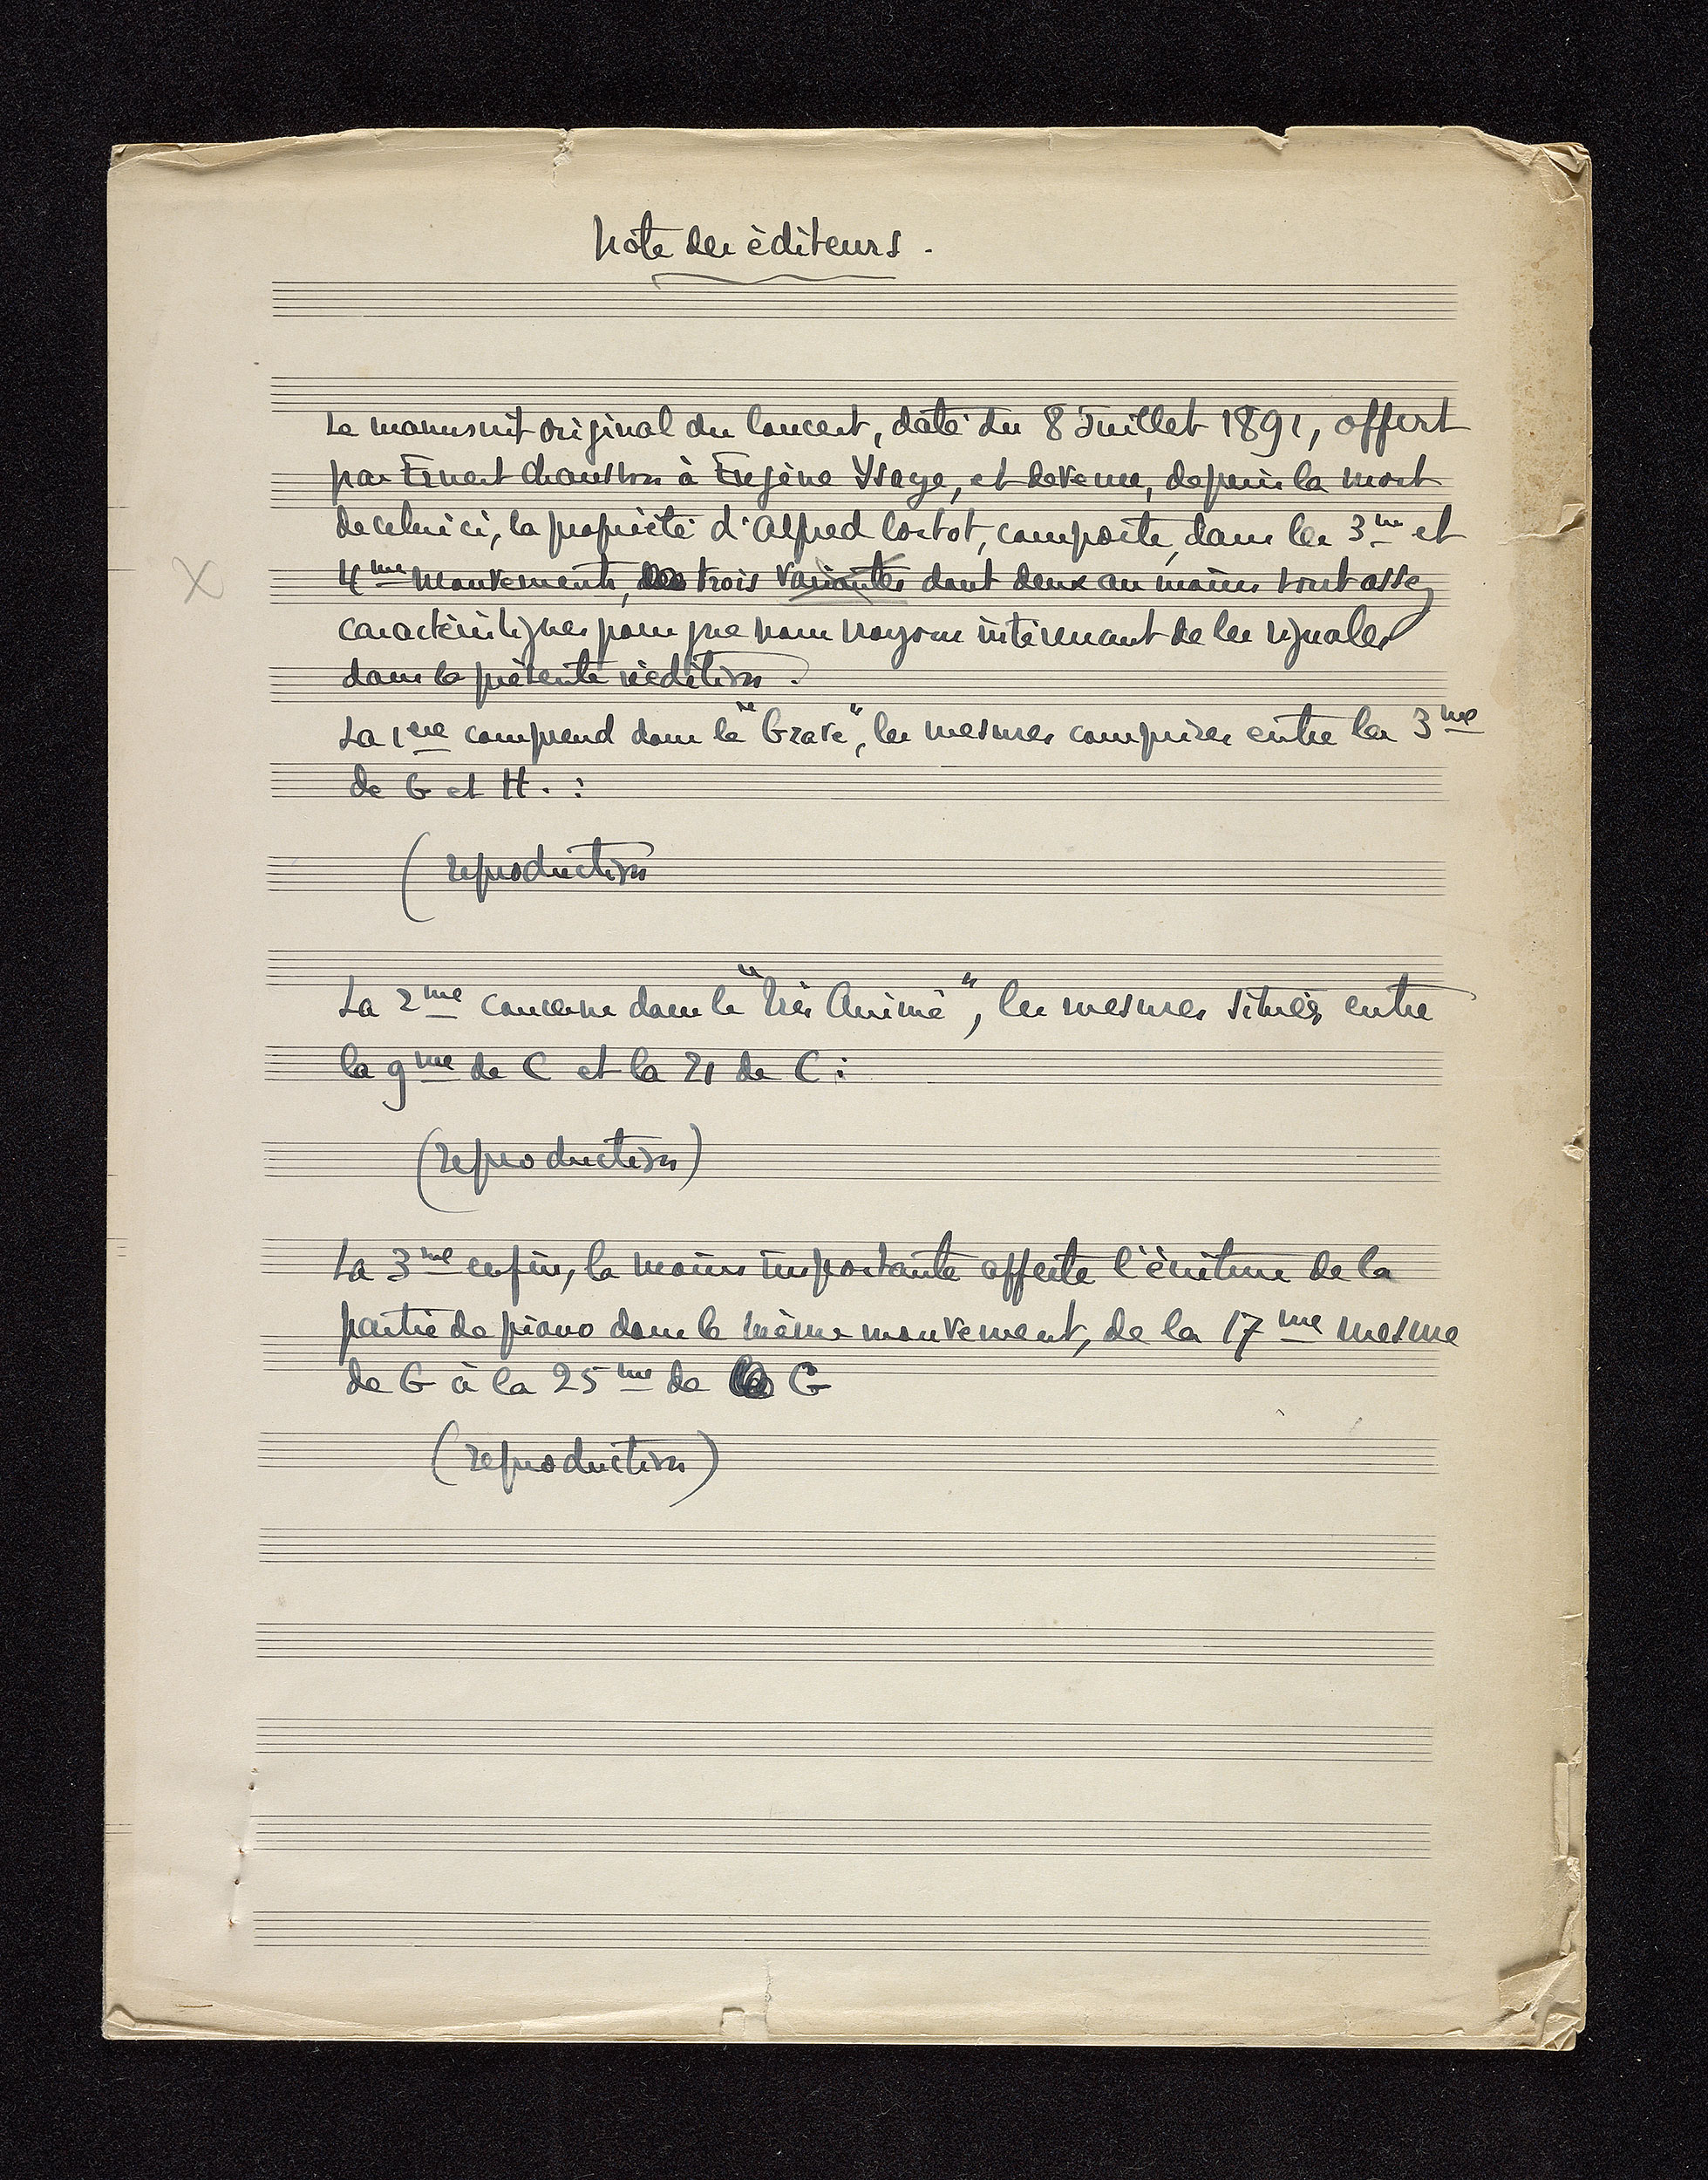 Note des éditeurs.
Le manuscrit original du Concert, daté du 8 Juillet 1891, offert
par Ernest Chausson à Eugène Ysaye, et devenu, depuis la mort
de celui ci, la propriété d'Alfred Cortot, comporte, dans les 3me et
4me mouvements, trois variantes dont deux au moins sont assez
caractéristiques pour que nous croyons intéressant de les signaler
dans la présente réédition.
La 1ere comprend dans le "Grave", les mesures comprises entre les 3me
de G et H. :
(reproduction
La 2me concerne dans le "Très Animé", les mesures situées entre
la 9me de C et la 21 de C :
(reproduction)
La 3me enfin, la moins importante affecte l'écriture de la
partie de piano dans le même mouvement, de la 17me mesure
de G à la 25me de G
(reproduction)
X